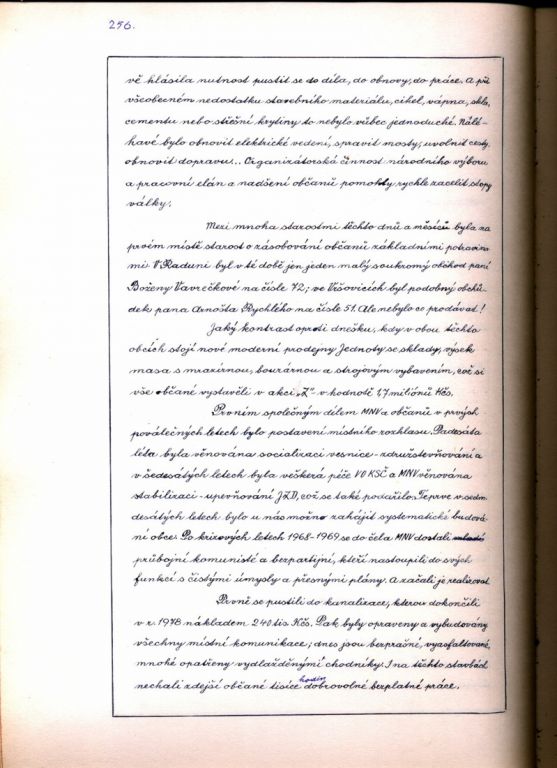 256.
vě hlásila nutnost pustit se do díla, do obnovy, do práce. A při
všeobecném nedostatku stavebního materiálu, cihel, vápna, skla,
cementu nebo střešní krytiny to nebylo vůbec jednoduché. Nálé-
havé bylo obnovit elektrické vedení, spravit mosty, uvolnit cesty,
obnovit dopravu... Organizátorská činnost národního výboru
a pracovní elán a nadšení občanů pomohly rychle zacelit stopy
války.
Mezi mnoha starostmi těchto dnů a měsíců byla na
prvém místě starost o zásobování občanů základními potravina
mi. V Raduni byl v té době jen jeden malý soukromý obchod paní
Boženy Vavrečkové na čísle 72; ve Vršovicích byl podobný obchů
dek pana Arnošta Rychlého na čísle 51. Ale nebylo co prodávat!
Jaký kontrast oproti dnešku, kdy v obou těchto
obcích stojí nové moderní prodejny Jednoty se sklady, výsek
masa s mrazírnou, bourárnou a strojovým vybavením, což si
vše občané vystavěli v akci „Z" v hodnotě 1,7 miliónů Kčs.
Prvním společným dílem MNV a občanů v prvých
poválečných letech bylo postavení místního rozhlasu. Padesátá
léta byla věnována socializaci vesnice - združstevňování a
v šedesátých letech byla veškerá péče VO KSČ a MNV věnována
stabilizaci - upevňování JZD, což se také podařilo. Teprve v sedm
desátých letech bylo u nás možno zahájit systematické budová
ní obce. Po krizových letech 1968-1969 se do čela MNV dostali mladí
průbojní komunisté a bezpartijní, kteří nastoupili do svých
funkcí s čistými úmysly a přesnými plány. A začali je realizovat
Prvně se pustili do kanalizace, kterou dokončili
v r. 1978 nákladem 240 tis. Kčs. Pak byly opraveny a vybudovány
všechny místní komunikace; dnes jsou bezprašné, vyasfaltované,
mnohé opatřeny vydlážděnými chodníky. I na těchto stavbách
nechali zdejší občané tisíce hodin dobrovolné bezplatné práce.